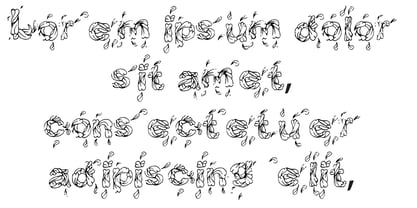 Lor em ips um dolor
sit amet,
cons ectetu er
adipiscing elit,